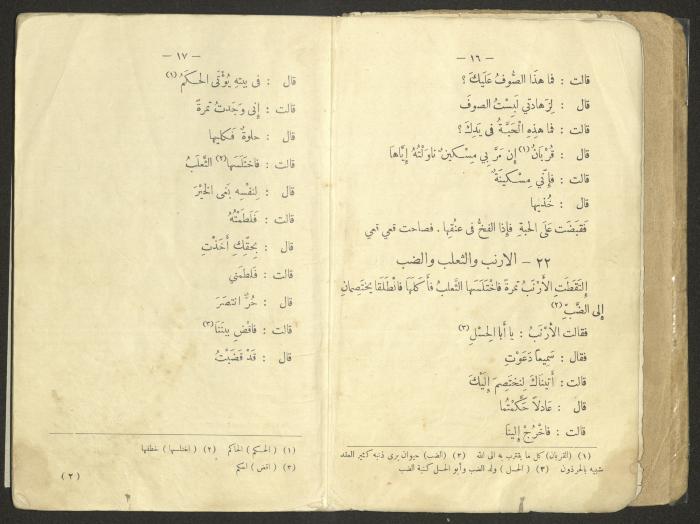 — ١٦ —
قالت : فما هذَا الصُّوفُ عَلَيكَ ؟
قال : لِزَهادتي لَبِسْتُ الصوفَ
قالت : فما هذِهِ الْحَبَّةُ في يَدِكَ ؟
قال : قُرْبَانٌ (١) إن مَرَّ بِي مِسْكينٌ ناوَلْتُهُ إِيَّاهَا
قالت : فإنّي مِسْكينَةٌ
قال : خُذيها
فَقبَضَت عَلَى الحَبةِ فإذَا الفخُّ في عنُقِها . فصاحت قعي قعي
٢٢ – الارنب والثعلب والضب
إلتَقطَتِ الأَرْنَبُ تمرةً فَاختَلَسَها الثَّعلبُ فأَكَلَهَا فَانْطَلَقَا يختَصِمَانِ
إِلى الضَّبِّ (٢)
فقالت الأَرْنَبُ : يا أَبا الحِسْلِ (٣)
فقال : سَمِيعاً دَعَوْتِ
قالت : أَتينَاكَ لِنختَصِمَ إِلَيْكَ
قال : عَادِلاً حَكَّمْتُما
قالت : فاخرُجْ إِلينَا
(١) (القربان) كل ما يتقرب به الى الله (٢) (الضب) حيوان بري ذنبه كثير العقد
شبيه بالحرذون (٣) (الحسل) ولد الضب وأبو الحسل كنية الضب
— ١٧ —
قال : في بيتِهِ يُؤْتَى الحَكَمُ (١)
قالت : إِنى وَجَدتُ تمرةً
قال : حلوةً فكليها
قالت : فَاختَلَسَها (٢) الثَّعلَبُ
قال : لِنفْسِهِ بَغَى الخيْرَ
قالت : فَلَطَمْتُهُ
قال : بِحَقِّكِ أَخَذْتِ
قالت : فلطَمَني
قال : حُرٌّ انتصَرَ
قالت : فاقْضِ بينَنَا (٣)
قال : قَدْ قَضَيْتُ
(١) (الحكم) الحاكم (٢) (اختلسها) خطفها
(٣) (اقض) احكم
(٢)